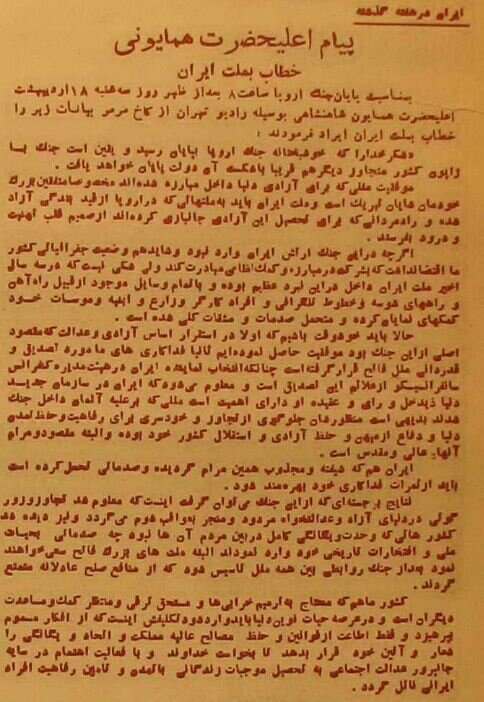 ایران در هفته گذشته
پیام اعلیحضرت همایونی
خطاب بملت ایران
بمناسبت پایان جنگ اروپا ساعت ۸ بعد از ظهر روز سه شنبه ۱۸ اردیبهشت
اعلیحضرت همایون شاهنشاهی بوسیله رادیو تهران از کاخ مرمر بیانات زیر را
خطاب بملت ایران ایراد فرمودند :
«شکر خدا را که خوشبختانه جنگ اروپا بپایان رسید و یقین است جنگ با
ژاپون کشور متجاوز دیگر هم قریبا باشکست آن دولت پایان خواهد یافت .
موفقیت مللی که برای آزادی دنیا داخل مبارزه شده اند مخصوصا متفقین بزرگ
خودمان شایان تبریک است و ملت ایران باید بملتهائی که در اروپا از قید بندگی آزاد
شده و رادمردانی که برای تحصیل این آزادی جانبازی کرده اند از صمیم قلب تهنیت
و درود بفرستد .
اگرچه درایی جنگ ارتش ایران وارد نبود و شاید هم وضعیت جغرافیائی کشور
ما اقتضا نداشت که بشرکت در مبارزه و کمک نظامی مبادرت کند ولی شکی نیست که در سه سال
اخیر ملت ایران داخل در این نبرد عظیم بوده و با تمام وسایل موجود از قبیل راه آهن
و راههای شوسه و خطوط تلگرافی و افراد کارگر و زارع و ابنیه و موسسات خود
کمکهای نمایان کرده و متحمل صدمات و مشقات کلی شده است .
حالا باید خوشوقت باشیم که اولا در استقرار اساس آزادی و عدالت که مقصود
اصلی از این جنگ بود موفقیت حاصل نموده ایم ثانیا فداکاری های ما مورد تصدیق و
قدردانی ملل فاتح قرار گرفته است چنانکه انتخاب نماینده ایران در هیئت مدیره کنفرانس
سانفرانسیسکو از علائم این تصدیق است و معلوم میدود که ایران در سازمان جدید
دنیا ذیدخل و رای و عقیده او دارای اهمیت است مللی که بر علیه آلمان داخل جنگ
شدند بدیهی است منظورشان جلوگیری از تجاوز و خودسری برای رفاهیت و حفظ تمدن
دنیا و دفاع از میهن و حفظ آزادی و استقلال کشور خود بوده و البته مقصود و مرام
آنها عالی و مقدس است .
ایران هم که شیفته و مجذوب همین مرام گردیده و صدماتی تحمل کرده است
باید از ثمرات فداکاری خود بهره مند شود .
نتایج برجسته ای که از این جنگ می توان گرفت اینست که معلوم شد تجاوز و زور
گوئی در دنیای آزاد و عدالتخواه مردود و منجر بعواقب شوم می گردد و نیز دیده شد
کشور هائی که وحدت و یگانگی کامل در بین مردم آن ها نبود چه صدماتی بحیات
ملی و افتخارات تاریخی خود وارد نمودند البته ملت های بزرگ فاتح سعی خواهند
نمود بعد از جنگ روابطی بین همه ملل تاسیس شود که از منافع صلح عادلانه متمتع
گردند .
کشور ما هم که محتاج به ترمیم خرابی ها و مستحق ترقی و منتظر کمک و مساعدت
دیگران است و در عرصه حیات نوین دنیا باید وارد شود تکلیفش اینست که از افکار مسموم
بپرهیزد و فقط اطاعت از قوانین و حفظ مصالح عالیه مملکت و اتحاد و یگانگی را
شعار و آئین خود قرار بدهد تا بخواست خداوند و با فعالیت اهتمام در سایه
جانپرور عدالت اجتماعی به تحصیل موجبات زندگانی با تمدن و تامین رفاهیت افراد
ایرانی نائل گردد .